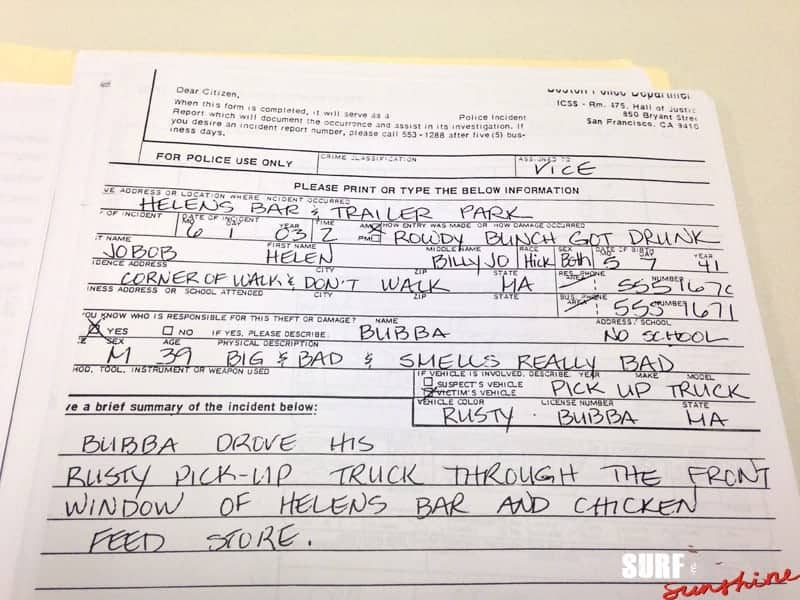 Dear Citizen,
When this form is completed, it will serve as a Police Incident
Report which will document the occurrence and assist in its investigation. If
you desire an incident report number, please call 553-1288 after five (5) bus-
iness days.
Boston Police Department
ICSS - Rm. 475, Hall of Justic
850 Bryant Stree
San Francisco, CA 9410
FOR POLICE USE ONLY
CRIME CLASSIFICATION
ASSIGNED TO
VICE
PLEASE PRINT OR TYPE THE BELOW INFORMATION
VE ADDRESS OR LOCATION WHERE INCIDENT OCCURRED
HELENS BAR & TRAILER PARK
OF INCIDENT DATE OF INCIDENT MO DAY YEAR TIME AM PM HOW ENTRY WAS MADE OR HOW DAMAGE OCCURRED
6 1 03 2 ROWDY BUNCH GOT DRUNK
T NAME FIRST NAME MIDDLE NAME RACE SEX DATE OF BIRTH MO DAY YEAR
JOBOB HELEN BILLY JO Hick Both 5 7 41
IDENCE ADDRESS CITY ZIP STATE RES. PHONE AREA NUMBER
CORNER OF WALK & DON'T WALK MA 555 1670
INESS ADDRESS OR SCHOOL ATTENDED CITY ZIP STATE BUS. PHONE AREA NUMBER
555 9671
YOU KNOW WHO IS RESPONSIBLE FOR THIS THEFT OR DAMAGE? NAME ADDRESS/SCHOOL
X YES NO IF YES, PLEASE DESCRIBE: BUBBA NO SCHOOL
SEX AGE PHYSICAL DESCRIPTION
M 39 BIG & BAD & SMELLS REALLY BAD
HOD, TOOL, INSTRUMENT OR WEAPON USED
IF VEHICLE IS INVOLVED, DESCRIBE: YEAR MAKE MODEL
SUSPECT'S VEHICLE
VICTIM'S VEHICLE PICK UP TRUCK
VEHICLE COLOR LICENSE NUMBER STATE
RUSTY BUBBA MA
ve a brief summary of the incident below:
BUBBA DROVE HIS
RUSTY PICK-UP TRUCK THROUGH THE FRONT
WINDOW OF HELENS BAR AND CHICKEN
FEED STORE.
SURF &
sunshine